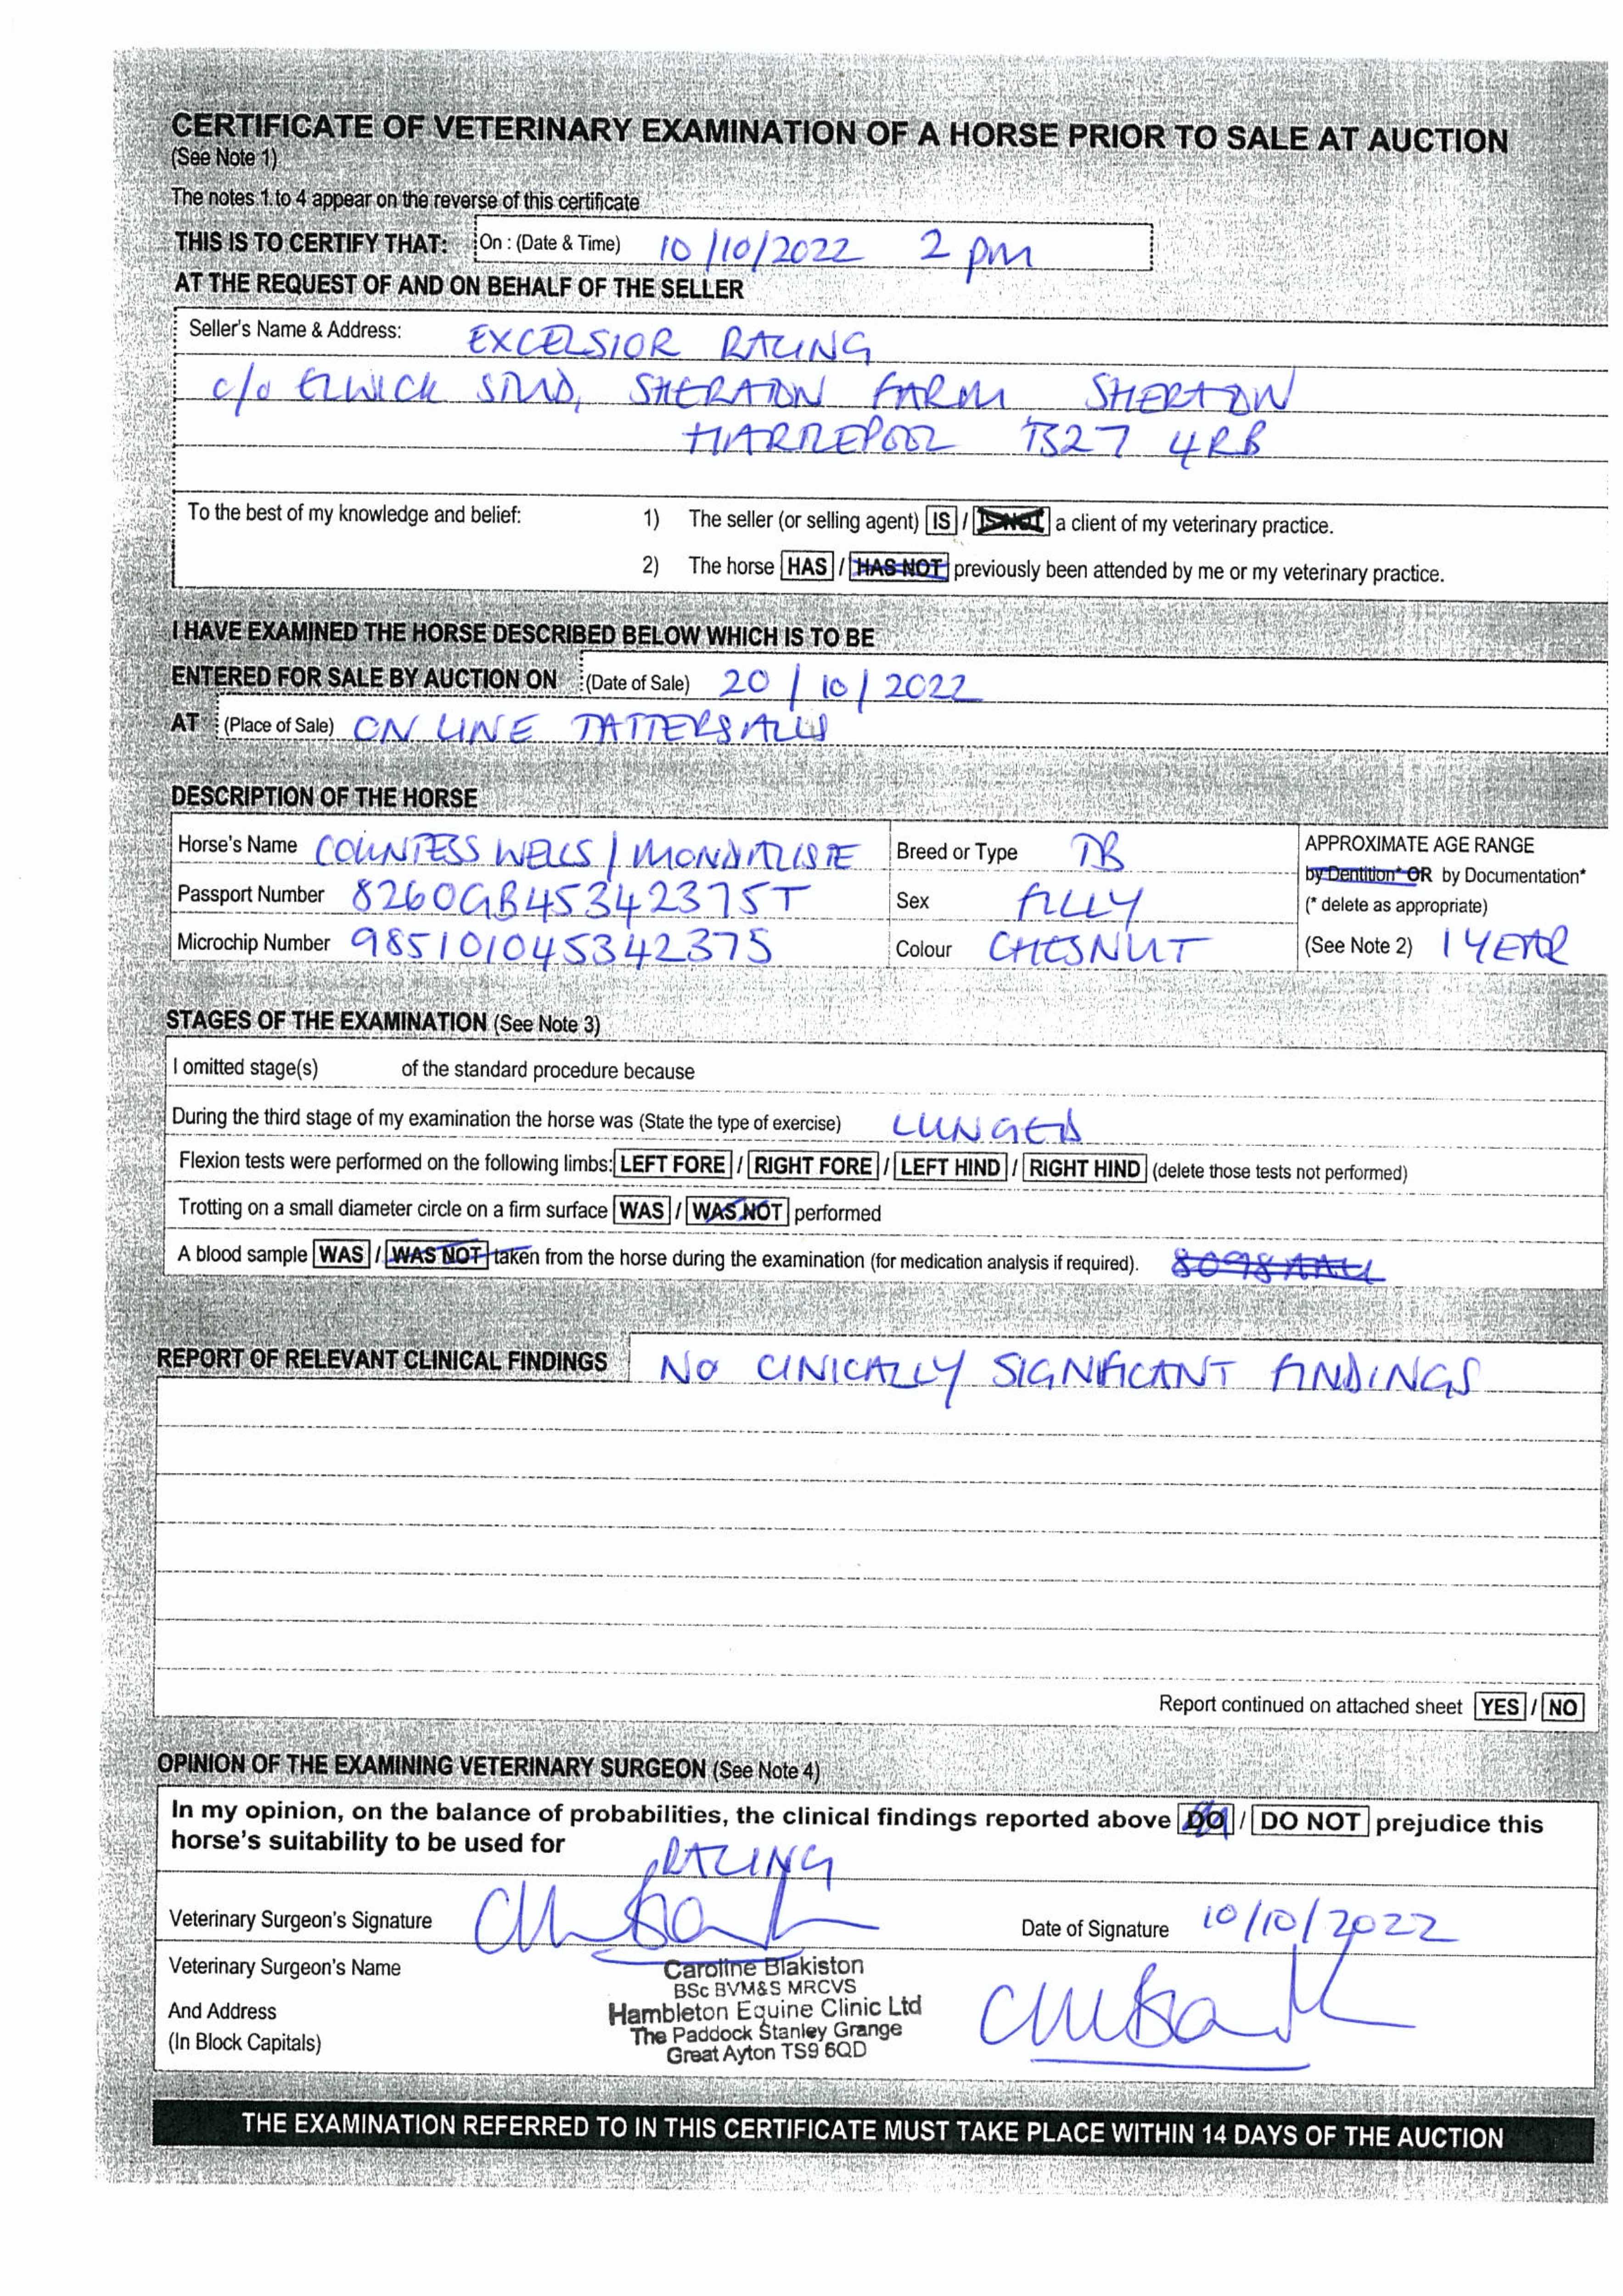 CERTIFICATE OF VETERINARY EXAMINATION OF A HORSE PRIOR TO SALE AT AUCTION
(See Note 1)
The notes 1 to 4 appear on the reverse of this certificate
THIS IS TO CERTIFY THAT: On : (Date & Time) 10/10/2022 2 pm
AT THE REQUEST OF AND ON BEHALF OF THE SELLER
Seller's Name & Address: EXCELSIOR RACING
c/o ELWICK STUD, SHERATON FARM SHERATON
HARTLEPOOL TS27 4RB
To the best of my knowledge and belief: 1) The seller (or selling agent) IS / IS NOT a client of my veterinary practice.
2) The horse HAS / HAS NOT previously been attended by me or my veterinary practice.
I HAVE EXAMINED THE HORSE DESCRIBED BELOW WHICH IS TO BE
ENTERED FOR SALE BY AUCTION ON (Date of Sale) 20/10/2022
AT (Place of Sale) ON LINE TATTERSALLS
DESCRIPTION OF THE HORSE
Horse's Name COUNTESS WELLS / MONDIALISTE Breed or Type TB APPROXIMATE AGE RANGE
by Dentition* OR by Documentation*
Passport Number 8260GB45342375T Sex FILLY (* delete as appropriate)
Microchip Number 985101045342375 Colour CHESNUT (See Note 2) 1 YEAR
STAGES OF THE EXAMINATION (See Note 3)
I omitted stage(s) of the standard procedure because
During the third stage of my examination the horse was (State the type of exercise) LUNGED
Flexion tests were performed on the following limbs: LEFT FORE / RIGHT FORE / LEFT HIND / RIGHT HIND (delete those tests not performed)
Trotting on a small diameter circle on a firm surface WAS / WAS NOT performed
A blood sample WAS / WAS NOT taken from the horse during the examination (for medication analysis if required).
REPORT OF RELEVANT CLINICAL FINDINGS NO CINICALLY SIGNIFICANT FINDINGS
Report continued on attached sheet YES / NO
OPINION OF THE EXAMINING VETERINARY SURGEON (See Note 4)
In my opinion, on the balance of probabilities, the clinical findings reported above DO / DO NOT prejudice this
horse's suitability to be used for RACING
Veterinary Surgeon's Signature Date of Signature 10/10/2022
Veterinary Surgeon's Name Caroline Blakiston
BSc BVM&S MRCVS
And Address Hambleton Equine Clinic Ltd
The Paddock Stanley Grange
(In Block Capitals) Great Ayton TS9 6QD
THE EXAMINATION REFERRED TO IN THIS CERTIFICATE MUST TAKE PLACE WITHIN 14 DAYS OF THE AUCTION